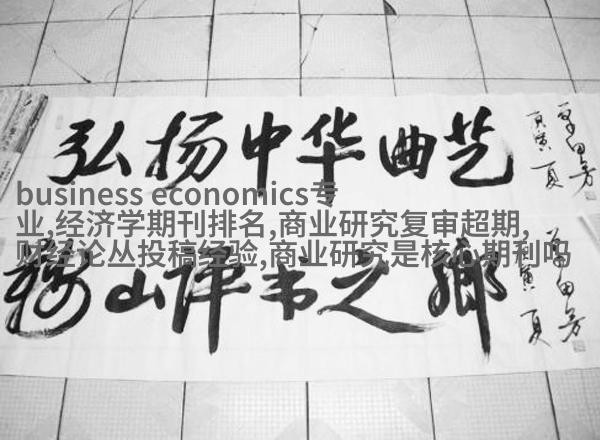 弘扬中华曲艺
单田芳
庚寅夏
business economics专
业,经济学期刊排名,商业研究复审超期,
财经论丛投稿经验,商业研究是核心期刊吗
鞍山评书之鄉
单田芳
庚寅夏